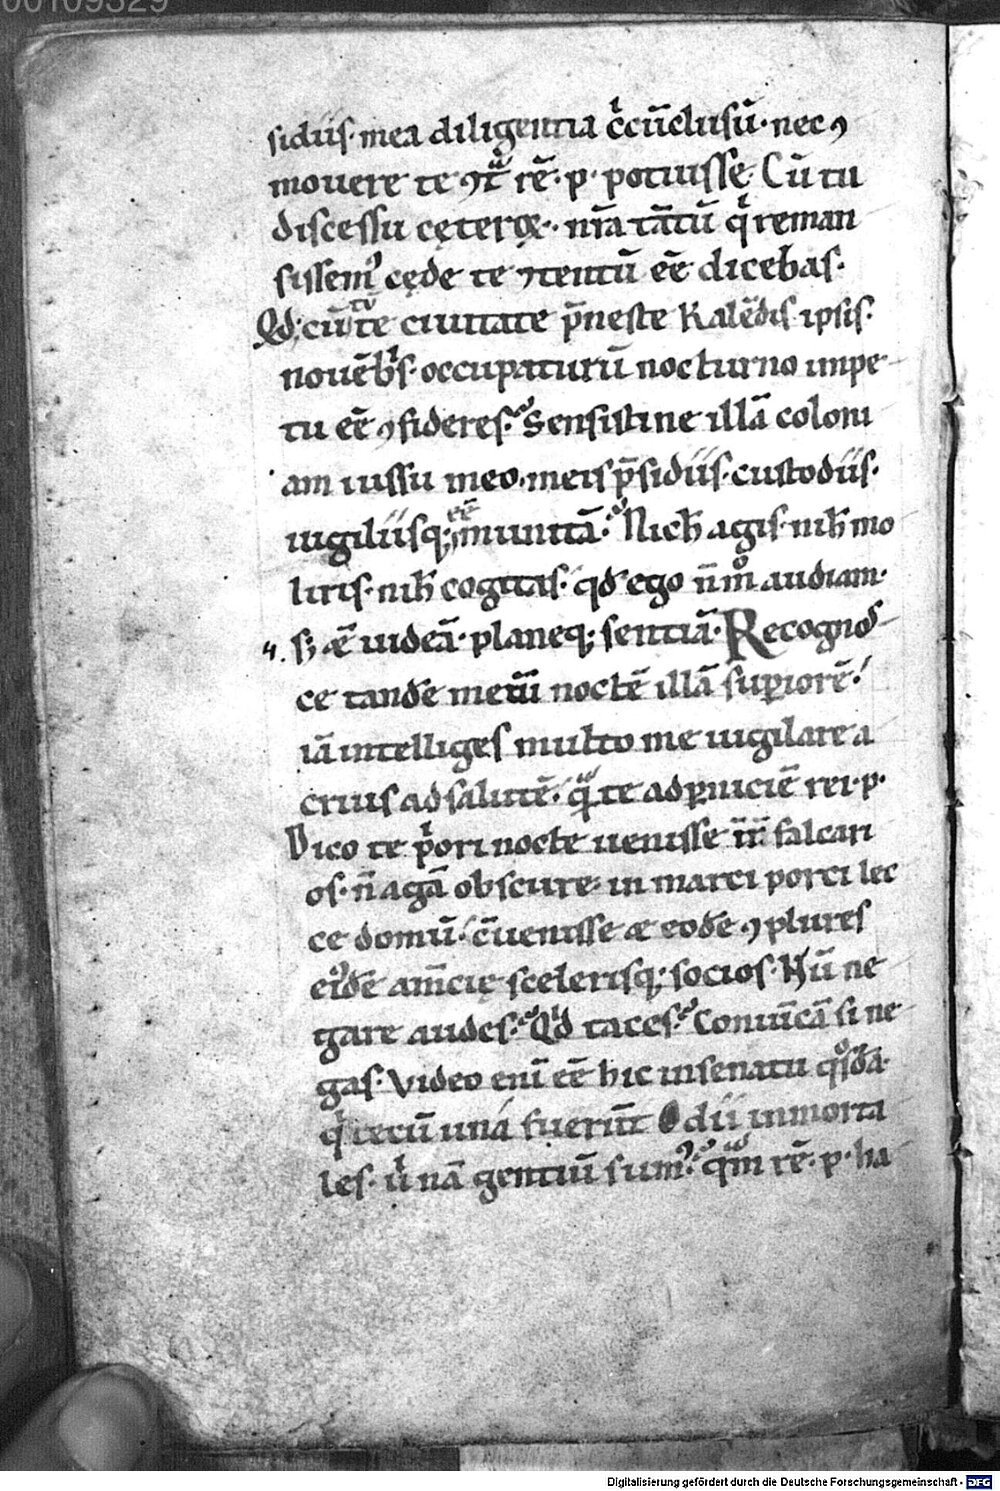 00109329
sidiis· mea diligentia c̄cūclusū· nec ꝯ
mouere te ꝯt̄ rē· p· potuisse· Cū tu
discessu cęteroꝝ· nr̄a tātū q̄ reman
sissem᾿ cęde te ꝯtentū eē dicebas·
Qd; cū tu te ciuitate p̄neste kalēdis ipsis·
nouēb᾿s· occupaturū nocturno impe
tu eē ꝯfideres· Sensistine illā coloni
am iussu meo· meis p̄sidiis· custodiis·
uigiliisq; eē munitā· Nich̄ agis· nih̄ mo
liris· nih̄ cogitas· qđ ego n̄ m̊ audiam·
s; ǣ uideā· planeq; sentiā· Recognos
ce tande mecū noctē illā suꝑiorē·
iā intelliges multo me uigilare a
crius ad salutē· qͣ te ad ꝑniciē rei· p·
Dico te pͥori nocte uenisse int̄ falcari
os· n̄ agā obscure· in marci porci lec
ce domū· c̄uenisse æ eode ꝯplures
ei᾿dē am̄cię scelerisq; socios· Nū ne
gare audes· Qͥd taces· Conuīcā si ne
gas· Video enī eē hic in senatu qͦsdā·
qͥ tecū una fuerūt O dii inmorta
les· uͥ nā gentiū sum᾿· qͣm rē· p· ha
Digitalisierung gefördert durch die Deutsche Forschungsgemeinschaft - DFG